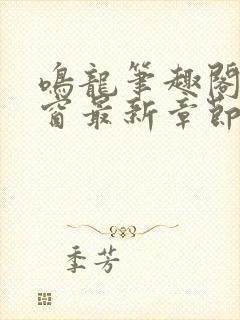 鳴龍筆趣閣
窗最新章節
季芳